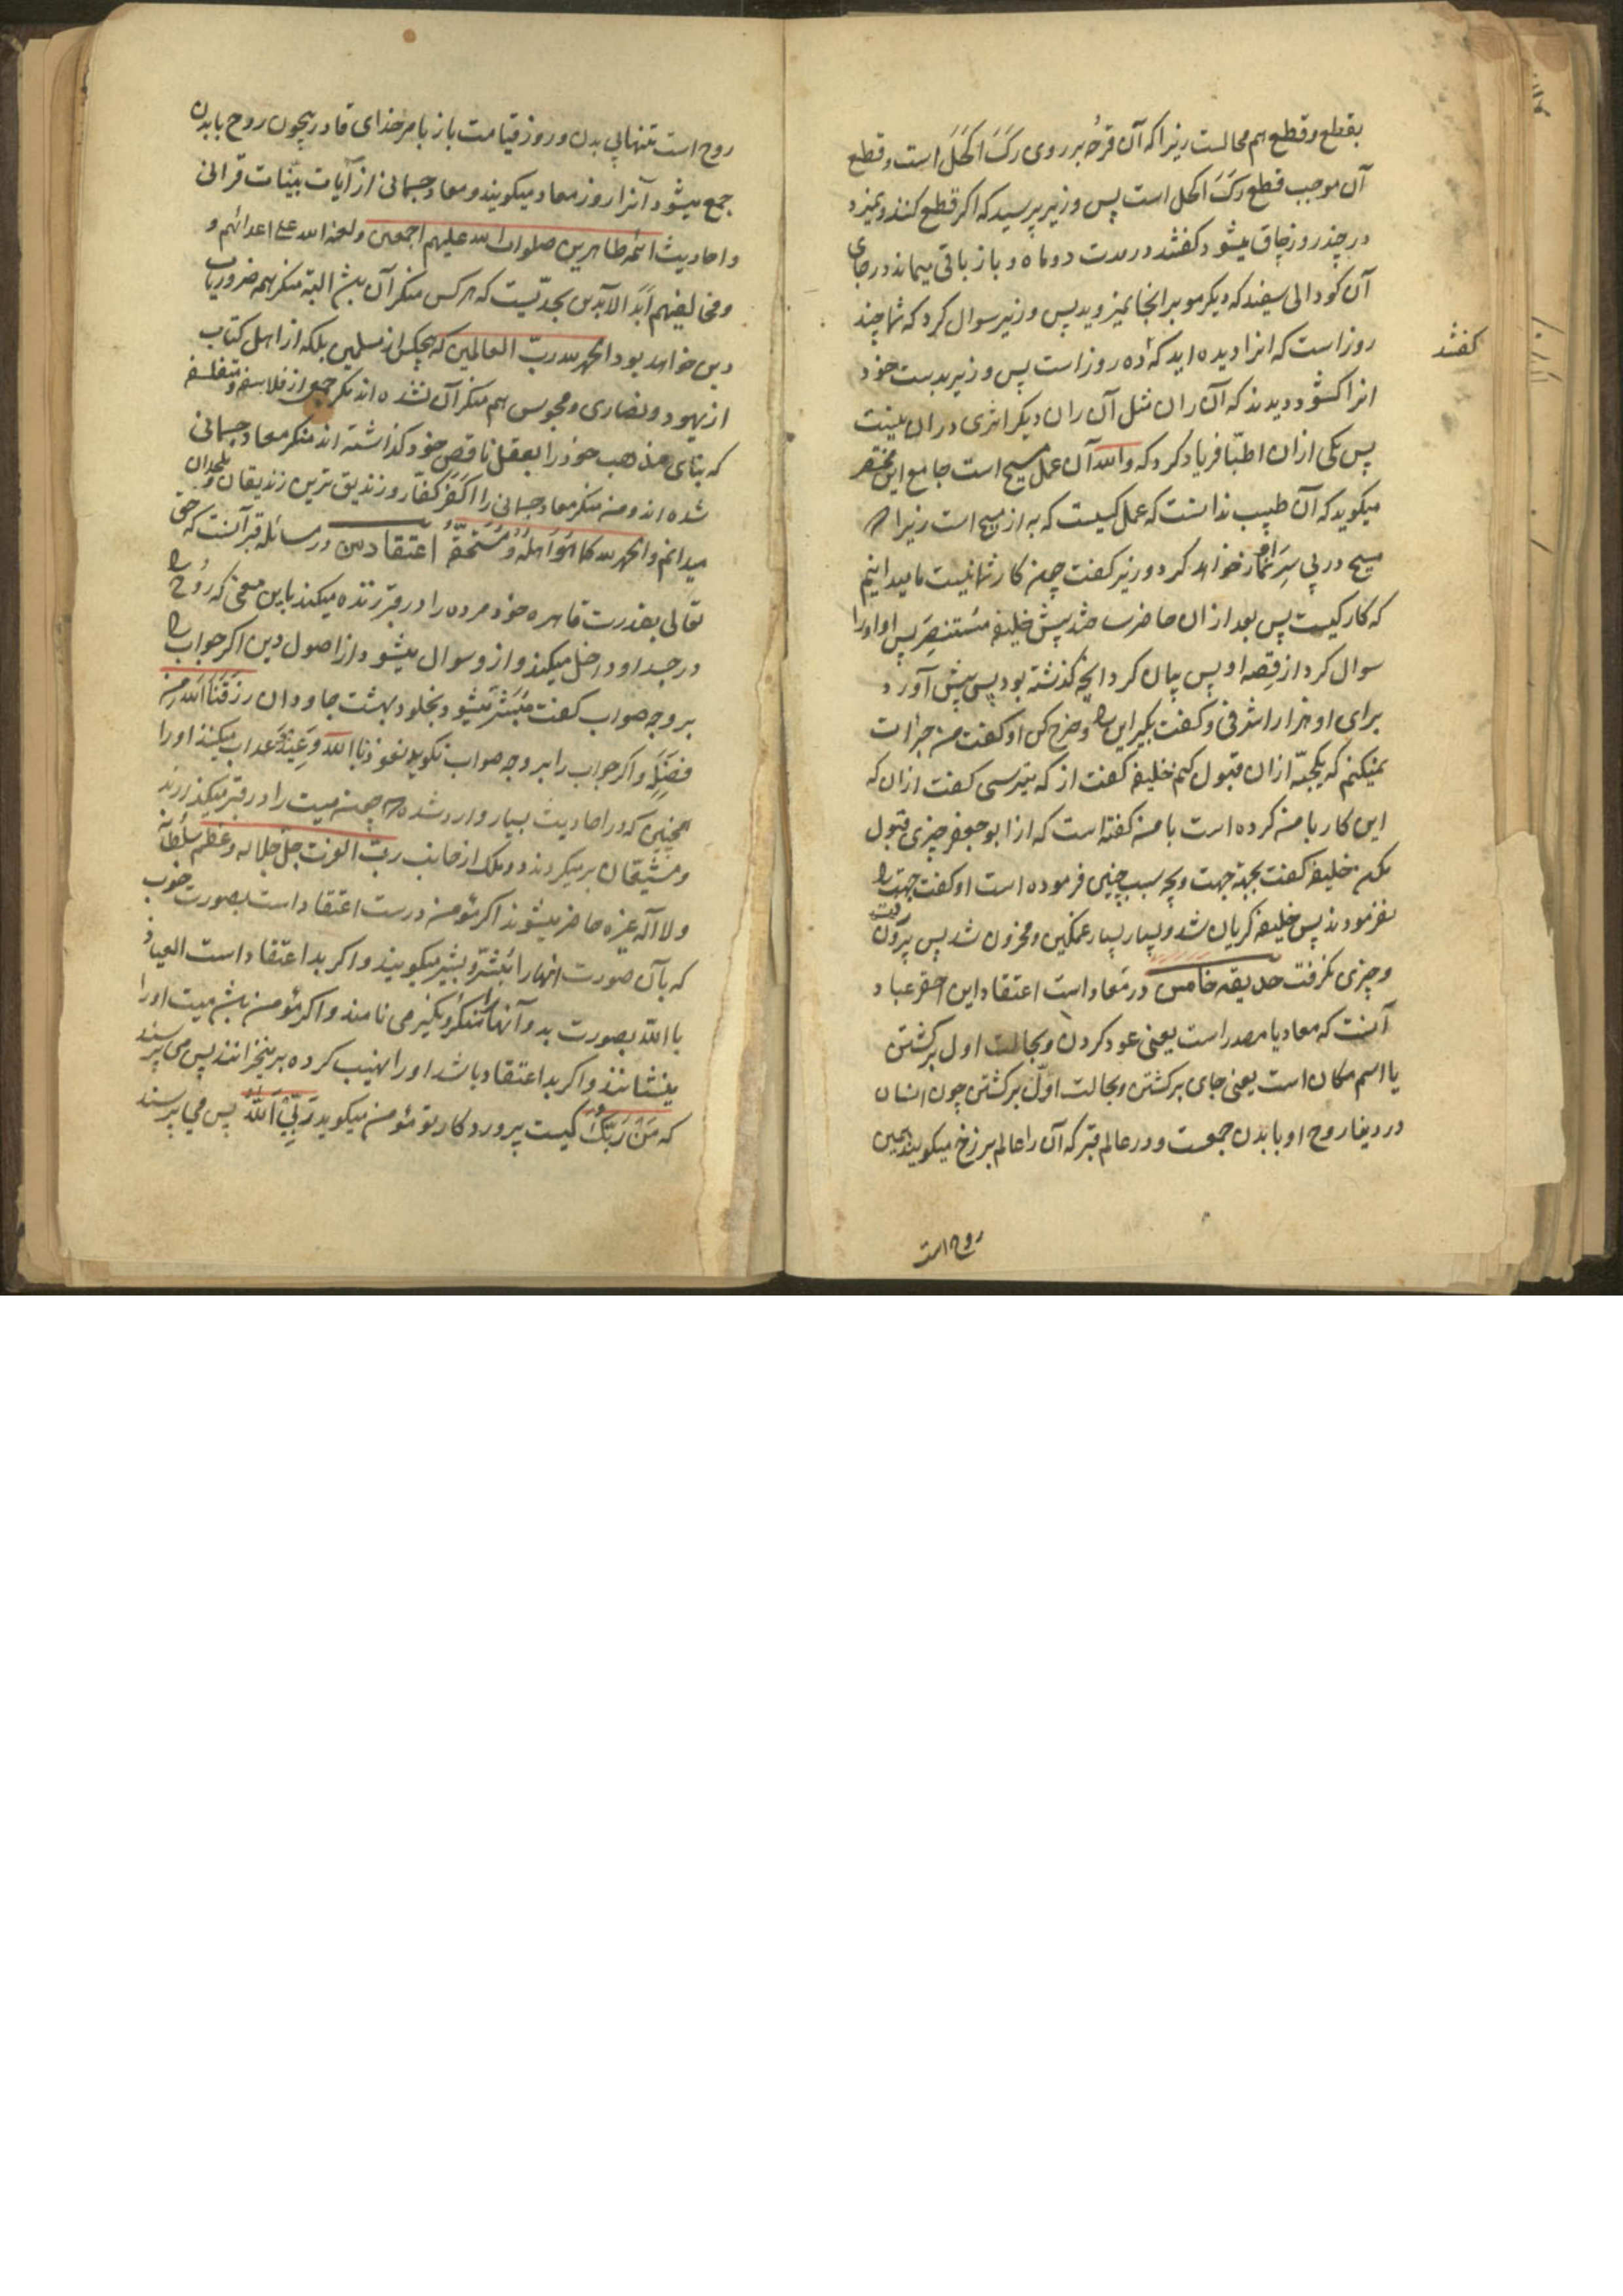 بقطع و قطع هم محالست زیرا که آن قرحه بر روی رگ اکحل است و قطع
آن موجب قطع رگ اکحل است پس وزیر پرسید که اکر قطع کنند و نمیرد
در چند روز چاق میشود کفتند در مدت دو ماه و باز باقی میماند در جای
آن کودالی سفید که دیکر مو بر انجا نمیروید پس وزیر سوال کرد که شما چند
روز است که انرا دیده اید که ده روز است پس وزیر بدست خود
کفتند
انرا کشود و دیدند که آن ران مثل آن ران دیکر اثری در ان نیست
پس یکی از ان اطبّا فریاد کرد که والله آن عمل مسیح است جامع این مختصر
میکوید که آن طبیب ندانست که عمل کیست که به از مسیح است زیرا که
مسیح در پی سر او نماز خواهد کرد وزیر کفت چون کار شما نیست ما میدانیم
که کار کیست پس بعد از ان حاضر شد پیش خلیفه مستنصر پس او اورا
سوال کرد از قصه او پس بیان کرد انچه کذشته بود پس پیش آورد
برای او هزار اشرفی و کفت بکیر این را و خرج کن او کفت من جرات
نمیکنم که یکحبّه از ان قبول کنم خلیفه کفت از که میترسی کفت از ان که
این کار با من کرده است با من کفته است که از ابو جعفر چیزی قبول
مکن خلیفه کفت بجهة جهت و بچه سبب چنین فرموده است او کفت جهت را
نفرمودند پس خلیفه کریان شد و بسیار بسیار غمکین و محزون شد پس بیرون رفت
و چیزی نکرفت حدیقه خامس در معاد است اعتقاد این احقر عباد
آنست که معاد یا مصدر است یعنی عود کردن و بحالت اول برکشتن
یا اسم مکان است یعنی جای برکشتن و بحالت اوّل برکشتن چون انسان
در دنیا روح او با بدن جمعست و در عالم قبر که آن را عالم برزخ میکویند همین
روح است
روح است تنهایی بدن و روز قیامت باز بامر خدای قادر بیچون روح با بدن
جمع میشود آنرا روز معاد میکویند و معاد جسمانی از آیات بیّنات قرانی
و احادیث ائمه طاهرین صلوات الله علیهم اجمعین و لعنة الله علی اعدائهم و
و مخالفیهم ابد الآبدین بحدّیست که هر کس منکر آن بشد البته منکر همه ضروریات
دین خواهد بود الحمد لله ربّ العالمین که هیچکس از مسلمین بلکه از اهل کتاب
از یهود و نصاری و مجوس هم منکر آن نشده اند مکر جمعی از فلاسفه و متفلسفه
که بنای مذهب خود را بعقل ناقص خود کذاشته اند منکر معاد جسمانی
شده اند و من منکر معاد جسمانی را اکفر کفّار و زندیق ترین زندیقان و ملحدان
میدانم والحمد لله کما هو اهله و مستحقّه اعتقاد من در مسائله قبر آنست که حق
تعالی بقدرت قاهره خود مرده را در قبر زنده میکند باین معنی که روح را
در جسد او داخل میکند و از و سوال میشود از اصول دین اکر جواب را
بر وجه صواب کفت مبشّر میشود بخلود بهشت جاودان رزقنا الله من
فضله و اکر جواب را بر وجه صواب نکوید نعوذ بالله وعید عذاب میکنند اورا
همچنین که در احادیث بسیار وارد شده که چون میت را در قبر میکذارند
و مشیّعان بر میکردند دو ملک از جانب ربّ العزت جلّ جلاله و عظم سلطانه
و لا اله غیره حاضر میشوند اکر مؤمن درست اعتقاد است بصورت خوب
که بآن صورت انهارا مبشّر و بشیر میکویند و اکر بد اعتقاد است العیاذ
باالله بصورت بد و آنها را منکر و نکیر می نامند و اکر مؤمن بشد میت اورا
بنشانند و اکر بد اعتقاد باشد اورا نهیب کرده بر میخزانند پس می پرسند
که من ربّک کیست پروردکار تو مؤمن میکوید ربّی الله پس می پرسند